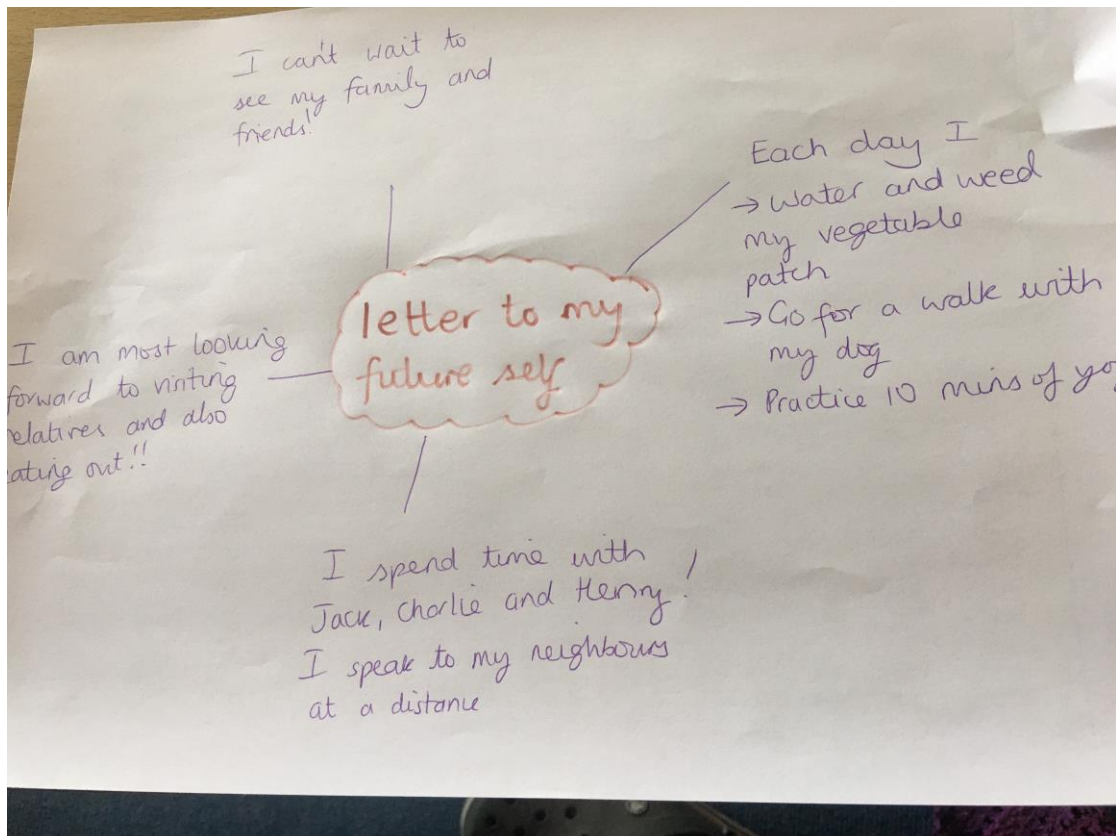 I can't wait to
see my family and
friends!
Each day I
→ Water and weed
my vegetable
patch
→ Go for a walk with
my dog
→ Practice 10 mins of
letter to my
future self
I am most looking
forward to visiting
and also
out!!
I spend time with
Jack, Charlie and Henry!
I speak to my neighbours
at a distance